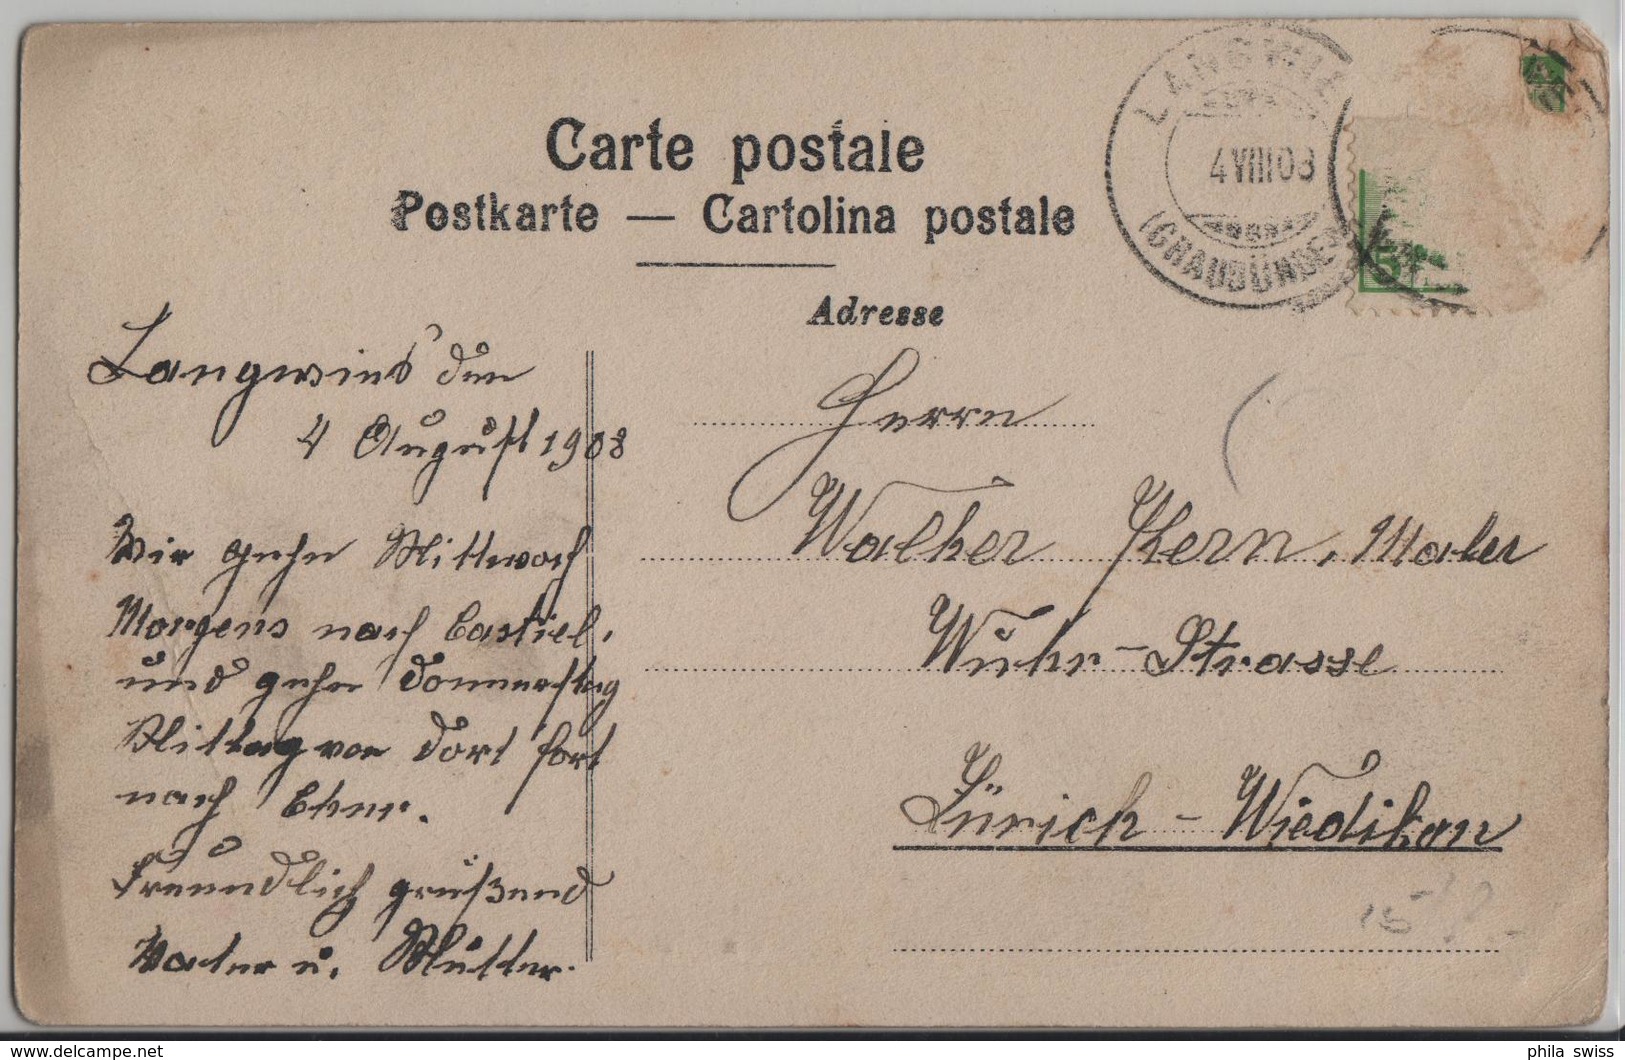 Carte postale
Postkarte — Cartolina postale
Adresse
LANGWIES
4 VIII 08
(GRAUBÜNDEN)
5
Langwies den
4 August 1908
Wir gehen Mittwoch
Morgens nach Castiel,
und gehen Donnerstag
Mittag von dort fort
nach Chur.
Freundlich grüßend
Vater u. Mutter.
Herrn
Walther Kern, Maler
Wuhr-Strasse
Zürich - Wiedikon
15
delcampe.net
phila_swiss